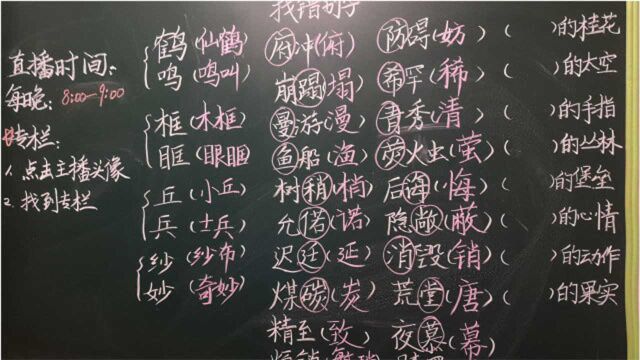 找错别字
直播时间:
每晚: 8:00—9:00
专栏:
1. 点击主播头像
2. 找到专栏
鹤(仙鹤) 府冲(俯) 防碍(妨) ( )的桂花
鸣(鸣叫) 崩蹋(塌) 希罕(稀) ( )的太空
框(木框) 曼游(漫) 青秀(清) ( )的手指
眶(眼眶) 鱼船(渔) 荧火虫(萤) ( )的丛林
乒(小乒) 树稍(梢) 后海(悔) ( )的堡垒
兵(士兵) 允偌(诺) 隐敞(蔽) ( )的心情
纱(纱布) 迟廷(延) 消毁(销) ( )的动作
妙(奇妙) 煤碳(炭) 荒堂(唐) ( )的果实
精至(致) 夜慕(幕)